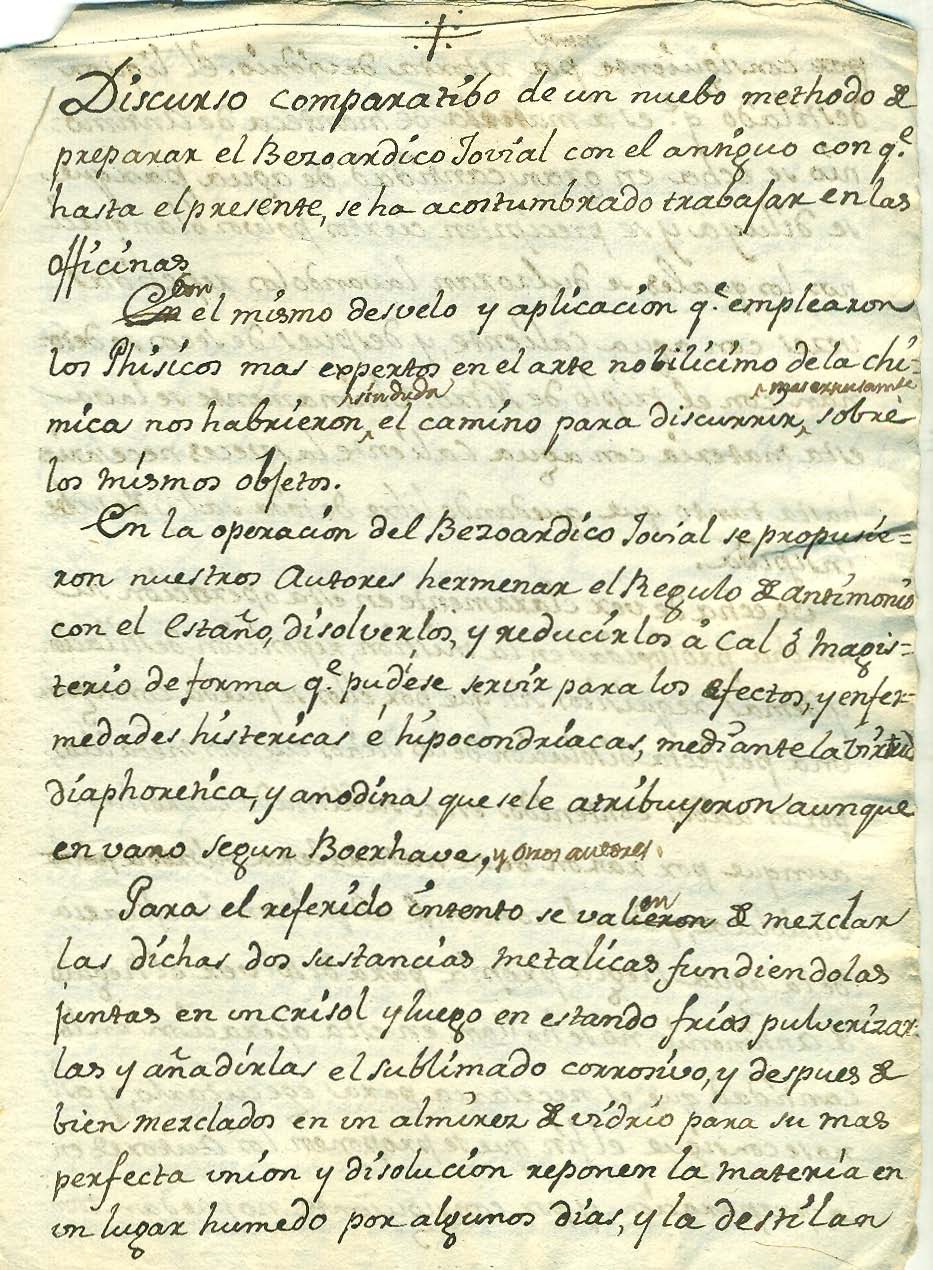 Discurso comparatibo de un nuebo methodo de
preparar el Bezoardico Jovial con el antiguo con q.e
hasta el presente, se ha acostumbrado trabajar en las
officinas
Con
En el mismo desvelo y aplicacion q.e emplearon
los Phisicos mas expertos en el arte nobilicimo de la chi=
sin duda mas expresamte
mica nos habrieron, el camino para discurrir, sobre
los mismos objetos.
En la operacion del Bezoardico Jovial se propusie=
ron nuestros Autores hermenar el Regulo de antimonio
con el Estaño, disolverlos, y reducirlos á Cal ó Magis=
terio de forma q.e pudiese servir para los efectos, y enfer=
medades histericas é hipocondriacas, mediante la virtud
diaphoretica, y anodina que se le atribuyeron aunque
en vano segun Boerhave, y otros autores
en
Para el referido intento se valieron de mezclar
las dichas dos sustancias metalicas fundiendolas
juntas en un crisol y luego en estando frias pulverizar=
las y añadirlas el sublimado corrosivo, y despues de
bien mezclados en un almirez de vidrio para su mas
perfecta union y disolucion reponen la materia en
un lugar humedo por algunos dias, y la destilan